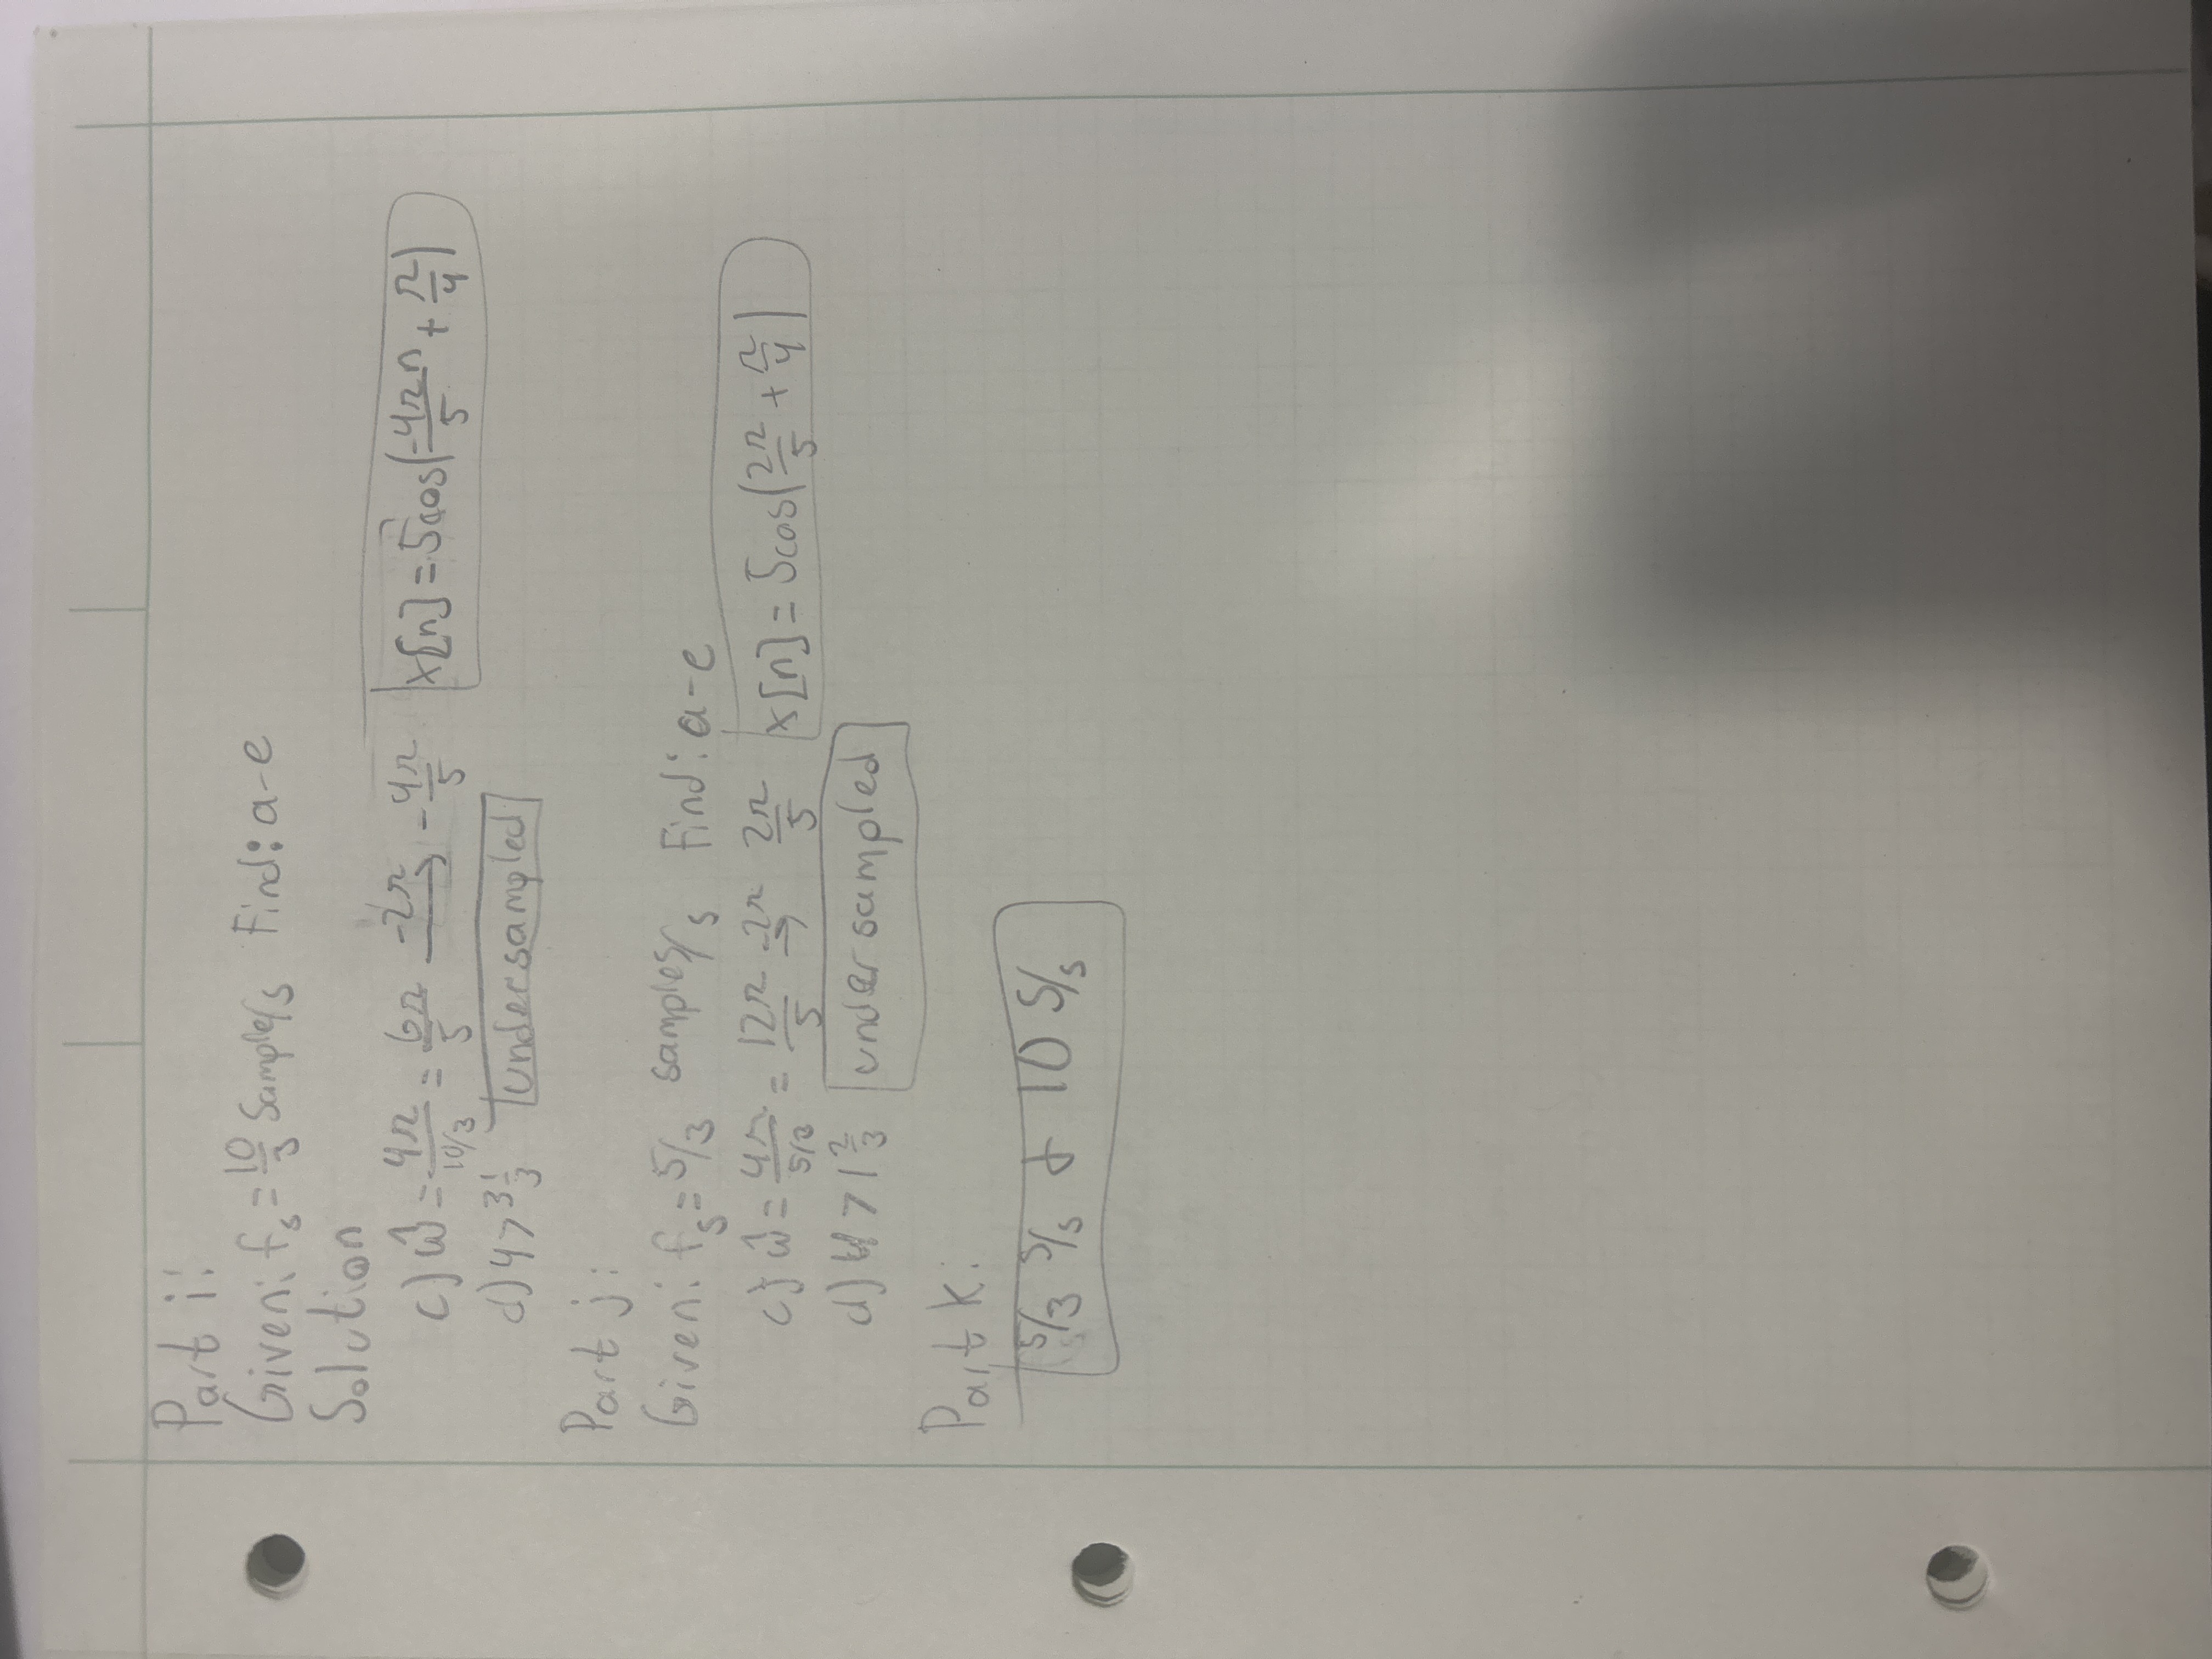 Part i:
Given: fs = 10/3 Sample/s Find: a-e
Solution
c) ω̂ = 4π/(10/3) = 6π/5 -2π → -4π/5 x[n] = 5cos(-4πn/5 + π/4)
d) 4 > 3 1/3 undersampled
Part j:
Given: fs = 5/3 samples/s Find: a-e
c) ω̂ = 4π/(5/3) = 12π/5 -2π → 2π/5 x[n] = 5cos(2π/5 + π/4)
d) 4 > 1 2/3 undersampled
Part k:
5/3 S/s & 10 S/s